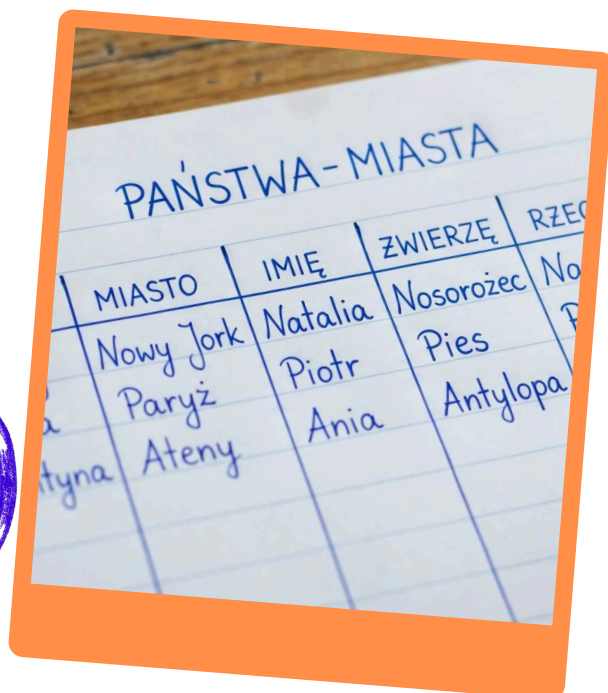 PAŃSTWA-MIASTA
MIASTO IMIĘ ZWIERZĘ
Nowy Jork Natalia Nosorożec
Paryż Piotr Pies
Ateny Ania Antylopa